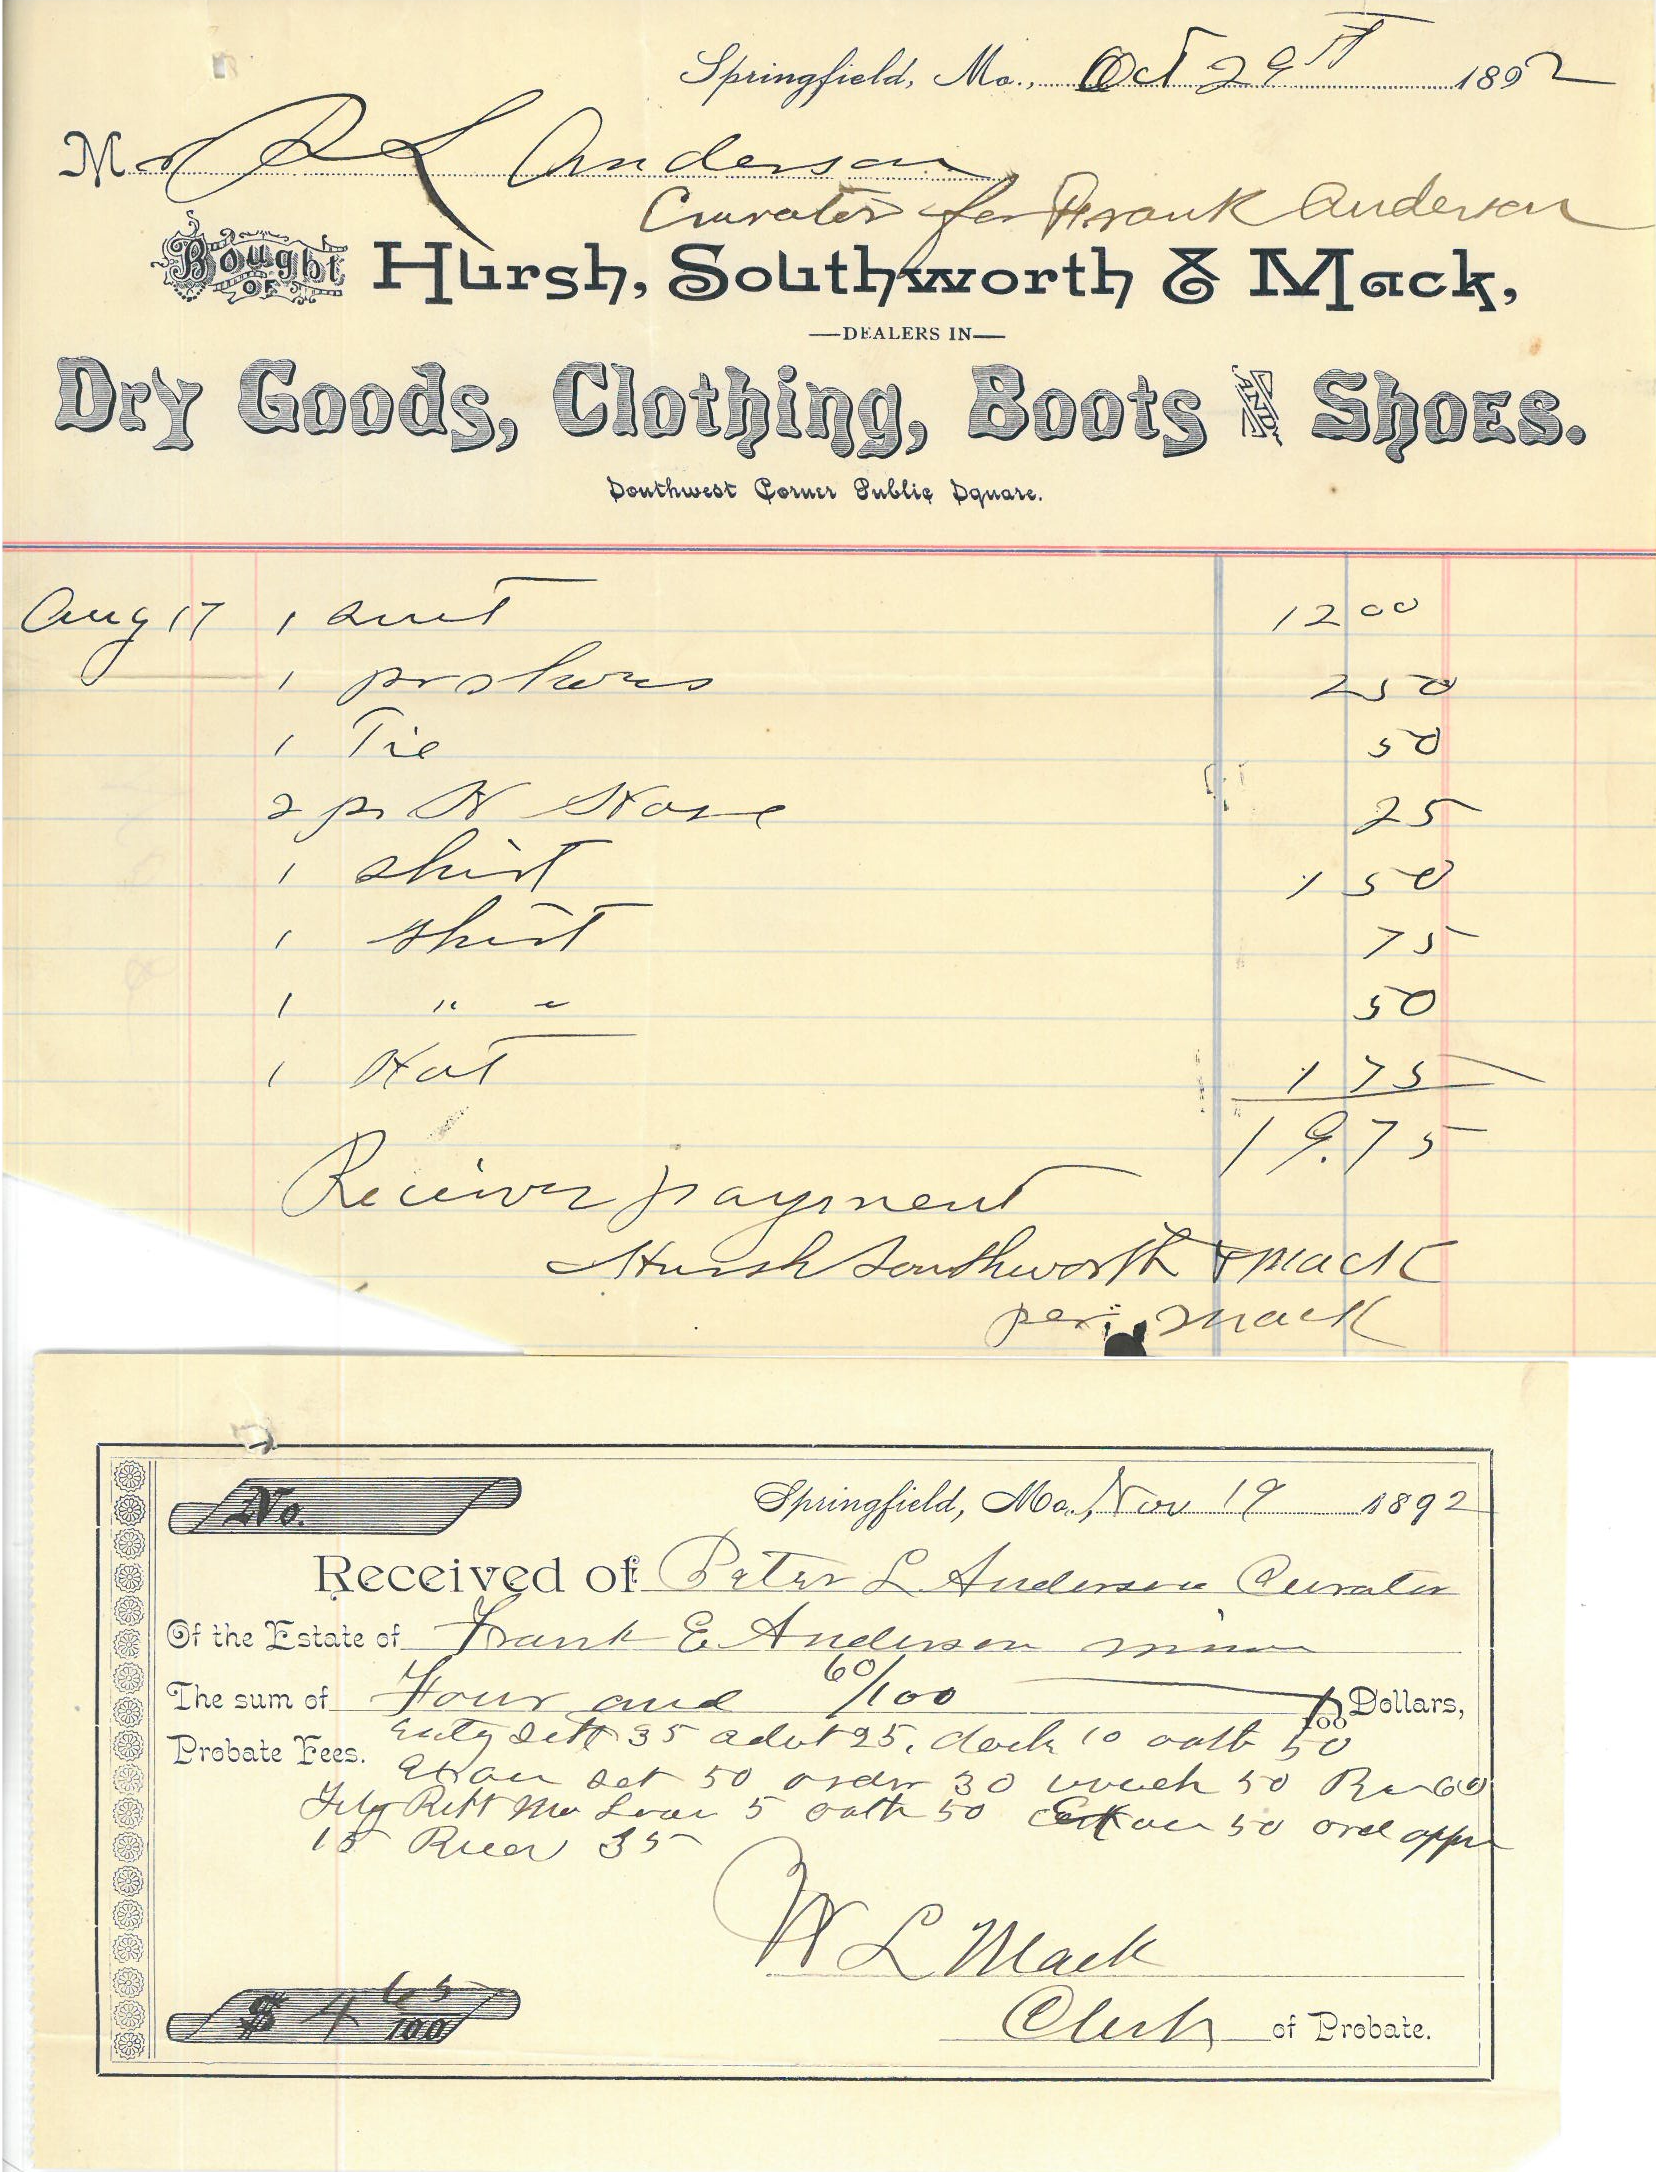 Springfield, Mo., Oct 29th 1892
Mr P L Anderson
Curator for Frank Anderson
Bought OF Hursh, Southworth & Mack,
—DEALERS IN—
Dry Goods, Clothing, Boots AND Shoes.
Southwest Corner Public Square.
Aug 17 1 suit 12 00
1 pr shoes 2 50
1 Tie 50
2 pr H Hose 25
1 shirt 1 50
1 shirt 75
1 " " 50
1 Hat 1 75
19.75
Receiver payment
Hursh Southworth & Mack
per Mack
No.
Springfield, Mo., Nov 19 1892
Received of Peter L Anderson Curator
Of the Estate of Frank E Anderson minor
The sum of Four and 60/100 /100 Dollars,
Probate Fees. sett 35 advt 25, dock 10 oath 50
set 50 order 30 vouch 50 Re 60
Filg Rett 5 oath 50 50 ord appr
15 35
W L Mack
$ 4 65/100
Clerk of Probate.